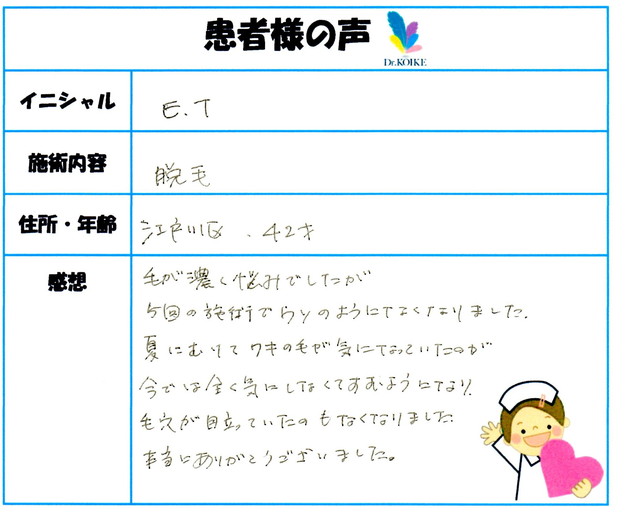 患者様の声
Dr.KOIKE
イニシャル
E.T
施術内容
脱毛
住所・年齢
江戸川区、42才
感想
毛が濃く悩みでしたが
5回の施術でウソのようになくなりました.
夏にむけてワキの毛が気になっていたのが
今では全く気にしなくてすむようになり
毛穴が目立っていたのもなくなりました
本当にありがとうございました。